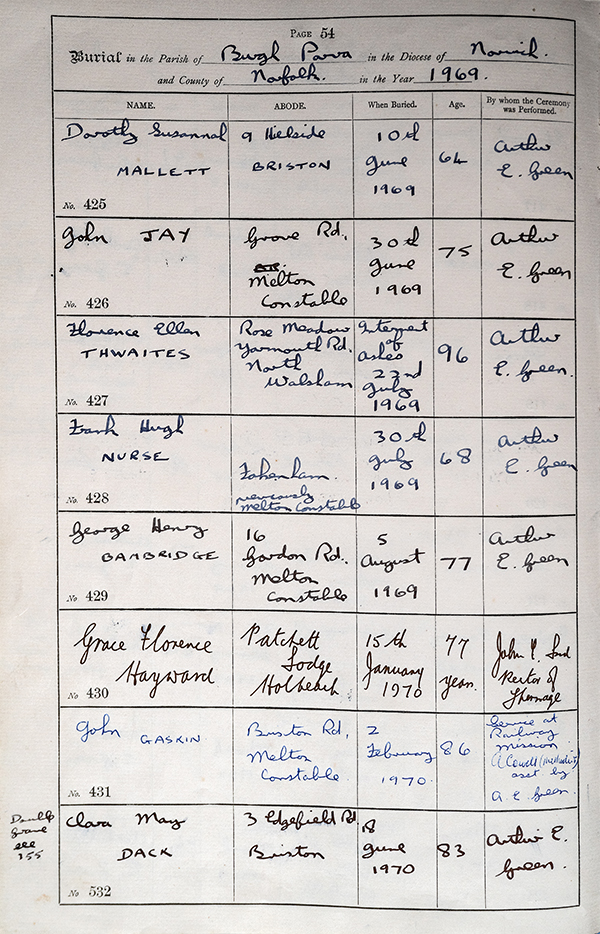 PAGE 54
Burial in the Parish of Burgh Parva in the Diocese of Norwich.
and County of Norfolk. in the Year 1969.
NAME. ABODE. When Buried. Age. By whom the Ceremony was Performed.
Dorothy Susannah
MALLETT
No. 425
9 Hillside
BRISTON
10th
June
1969
64
Arthur
E. Green
John JAY
No. 426
Grove Rd.
Melton
Constable
30th
June
1969
75
Arthur
E. Green
Florence Ellen
THWAITES
No. 427
Rose Meadow
Yarmouth Rd.
North
Walsham
Interment
of
Ashes
22nd
July
1969
96
Arthur
E. Green.
Frank Hugh
NURSE
No. 428
Fakenham.
previously
Melton Constable
30th
July
1969
68
Arthur
E. Green
George Henry
BAMBRIDGE
No. 429
16
Gordon Rd.
Melton
Constable
5
August
1969
77
Arthur
E. Green
Grace Florence
Hayward
No. 430
Patchett
Lodge
Holbeach
15th
January
1970
77
years.
John
Rector of
John
GASKIN
No. 431
Briston Rd,
Melton
Constable
2
February
1970.
86
Service at
Railway
Mission
A Cowell (Methodist)
asst by
A. E. Green.
Double
grave
see
155
Clara May
DACK
No 532
3 Edgefield Rd.
Briston
8
June
1970
83
Arthur E.
Green.